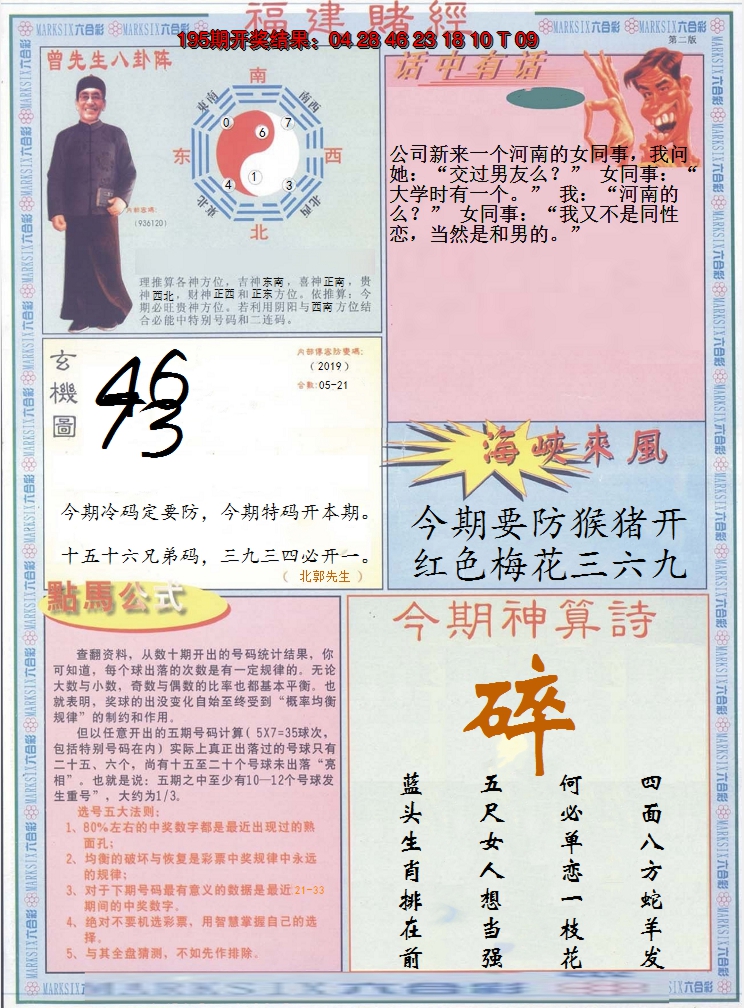 福建赌經
MARKSIX六合彩 MARKSIX六合彩 MARKSIX六合彩 MARKSIX六合彩
195期开奖结果：04 28 46 23 18 10 T 09
第二版
曾先生八卦阵
南
东南
南西
0
7
6
东
西
1
4
3
东北
北西
北
内部密碼：
（936120）
理推算各神方位，吉神东南，喜神正南，贵
神西北，财神正西和正东方位。依推算：今
期必旺贵神方位。若利用阴阳与西南方位结
合必能中特别号码和二连码。
话中有话
公司新来一个河南的女同事，我问
她：“交过男友么？” 女同事：“
大学时有一个。” 我：“河南的
么？” 女同事：“我又不是同性
恋，当然是和男的。”
玄機圖
46
13
内部傳密防變碼：
（2019）
合数：05-21
今期冷码定要防，今期特码开本期。
十五十六兄弟码，三九三四必开一。
（ 北郭先生 ）
海峡來風
今期要防猴猪开
红色梅花三六九
點馬公式
查翻资料，从数十期开出的号码统计结果，你
可知道，每个球出落的次数是有一定规律的。无论
大数与小数，奇数与偶数的比率也都基本平衡。也
就表明，奖球的出没变化自始至终受到“概率均衡
规律”的制约和作用。
但以任意开出的五期号码计算（5X7=35球次，
包括特别号码在内）实际上真正出落过的号球只有
二十五、六个，尚有十五至二十个号球未出落“亮
相”。也就是说：五期之中至少有10—12个号球发
生重号”，大约为1/3。
选号五大法则：
1、80%左右的中奖数字都是最近出现过的熟
面孔；
2、均衡的破坏与恢复是彩票中奖规律中永远
的规律；
3、对于下期号码最有意义的数据是最近21-33
期间的中奖数字。
4、绝对不要机选彩票，用智慧掌握自己的选
择。
5、与其全盘猜测，不如先作排除。
今期神算詩
碎
四面八方蛇羊发
何必单恋一枝花
五尺女人想当强
蓝头生肖排在前